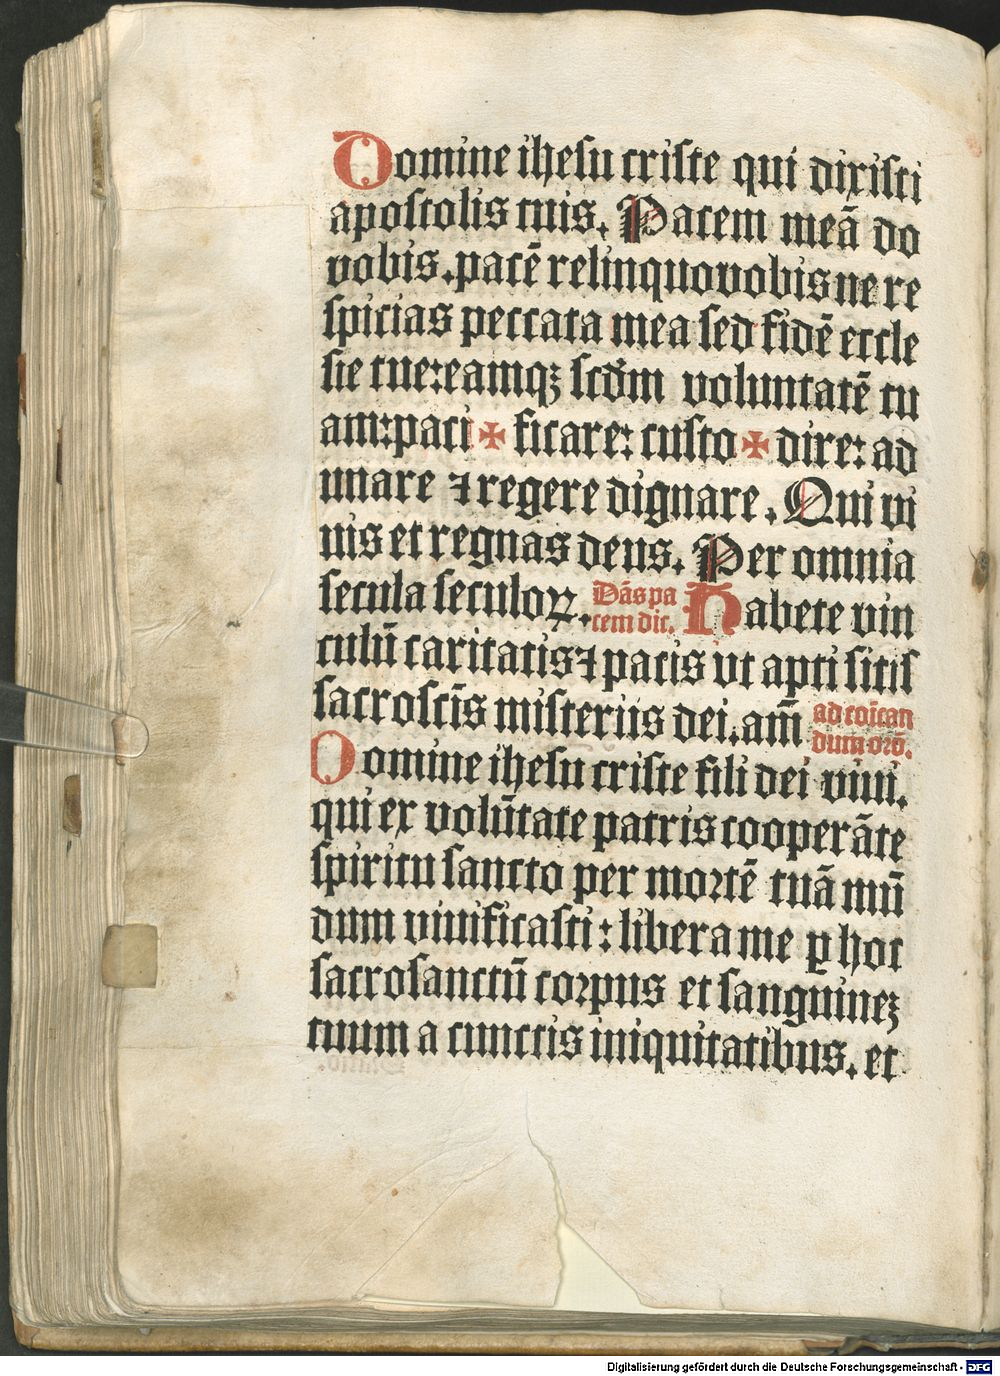 Domine ihesu criste qui dixisti
apostolis tuis. Pacem meā do
vobis. pacē relinquo vobis ne re
spicias peccata mea sed fidē eccle
sie tue: eamqꝫ scd̄m voluntatē tu
am: paci ✠ ficare: custo ✠ dire: ad
unare ⁊ regere dignare. Qui vi
uis et regnas deus. Per omnia
secula seculoꝝ. Dās pa
cem dic. Habete vin
culū caritatis ⁊ pacis ut apti sitis
sacroscīs misteriis dei. am̄ ad cōīcan
dum orō.
Domine ihesu criste fili dei viui.
qui ex volūtate patris cooperāte
spiritu sancto per mortē tuā mū
dum viuificasti: libera me ꝑ hoc
sacrosanctū corpus et sanguineꝫ
tuum a cunctis iniquitatibus. et
Digitalisierung gefördert durch die Deutsche Forschungsgemeinschaft - DFG